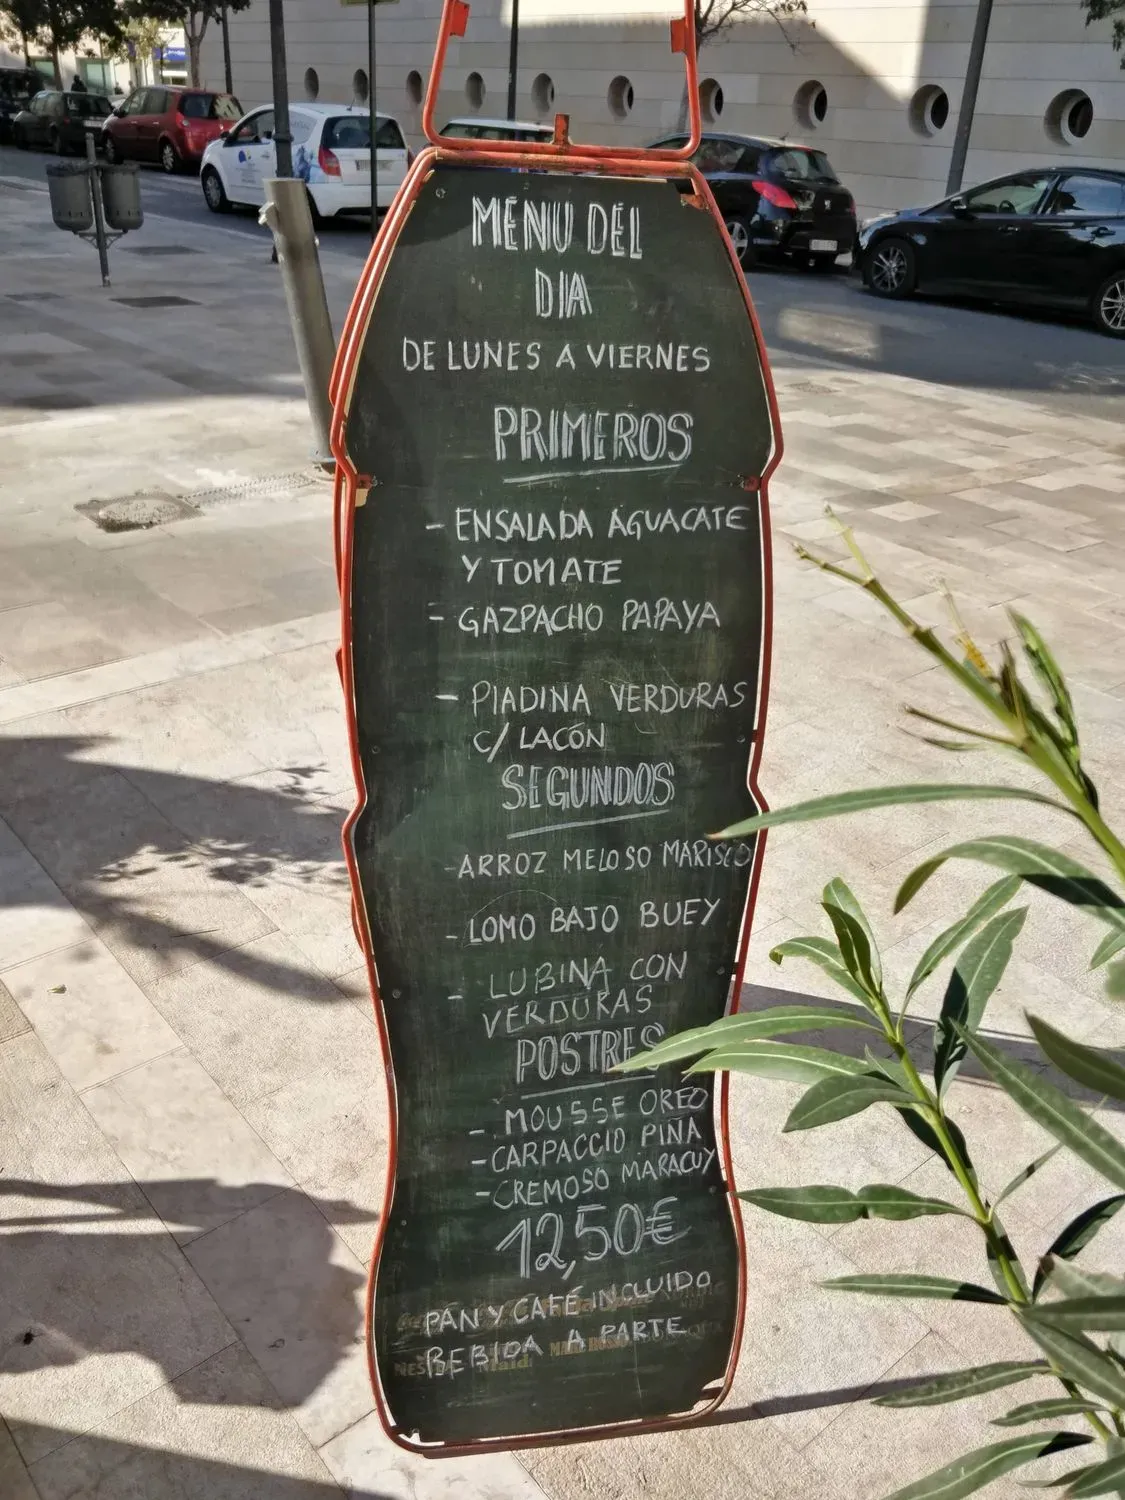 MENU DEL
DIA
DE LUNES A VIERNES
PRIMEROS
- ENSALADA AGUACATE
Y TOMATE
- GAZPACHO PAPAYA
- PIADINA VERDURAS
C/ LACÓN
SEGUNDOS
- ARROZ MELOSO MARISCO
- LOMO BAJO BUEY
- LUBINA CON
VERDURAS
POSTRES
- MOUSSE OREO
- CARPACCIO PIÑA
- CREMOSO MARACUY
12,50€
PAN Y CAFÉ INCLUIDO
BEBIDA A PARTE